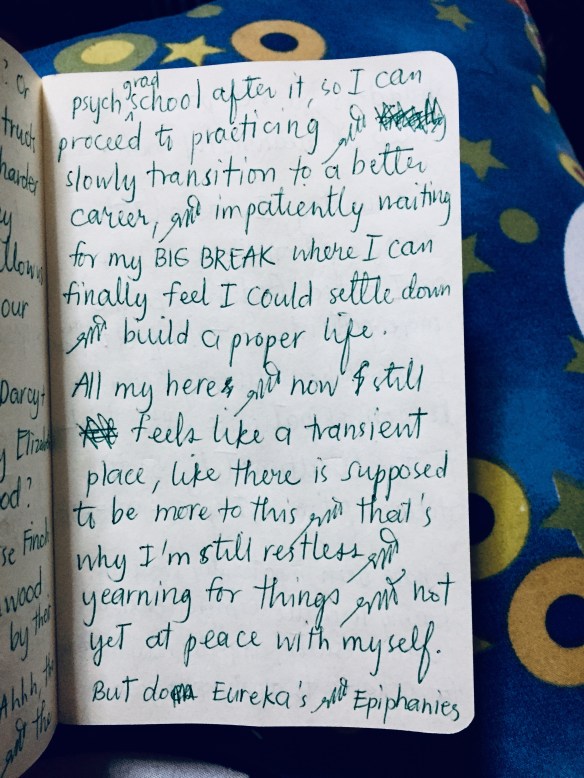 ? Or
truct
harder
ey
llown
our
Darcy +
y Elizab
od?
se Finch
wood
by thei
Ahhh, th
and the
psych grad school after it, so I can
proceed to practicing and
slowly transition to a better
career, and impatiently waiting
for my BIG BREAK where I can
finally feel I could settle down
and build a proper life.
All my here & and now still
feels like a transient
place, like there is supposed
to be more to this and that's
why I'm still restless and
yearning for things and not
yet at peace with myself.
But do Eureka's and Epiphanies